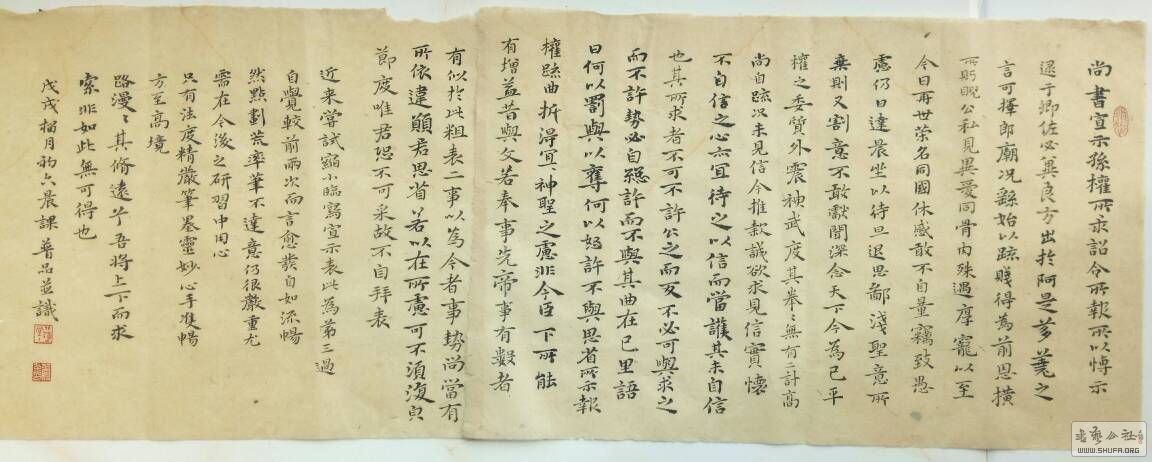 尚書宣示孫權所求詔令所報所以博示
逮于卿佐必冀良方出於阿是芻蕘之
言可擇郎廟況繇始以疏賤得為前恩橫
所盻睨公私見異愛同骨肉殊遇厚寵以至
今日再世榮名同國休慼敢不自量竊致愚
慮仍日達晨坐以待旦退思鄙淺聖意所
棄則又割意不敢獻聞深念天下今為已平
權之委質外震神武度其拳〻無有二計高
尚自疏況未見信今推款誠欲求見信實懷
不自信之心亦宜待之以信而當護其未自信
也其所求者不可不許〻之而反不必可與求之
而不許勢必自絕許而不與其曲在己里語
曰何以罰與以奪何以怒許不與思省所示報
權疏曲折得宜〻神聖之慮非今臣下所能
有增益昔與文若奉事先帝事有數者
有似於此粗表二事以為今者事勢尚當有
所依違願君思省若以在所慮可不須復皃
節度唯君恐不可采故不自拜表
近来嘗試縮小臨寫宣示表此為第三過
自覺較前兩次而言愈發自如流暢
然點劃荒率筆不達意仍很嚴重尤
需在今後之研習中用心
只有法度精嚴筆墨靈妙心手雙暢
方至高境
路漫〻其脩遠兮吾將上下而求
索非如此無可得也
戊戌榴月初六晨課普品並識
書藝公社
WWW.SHUFA.ORG